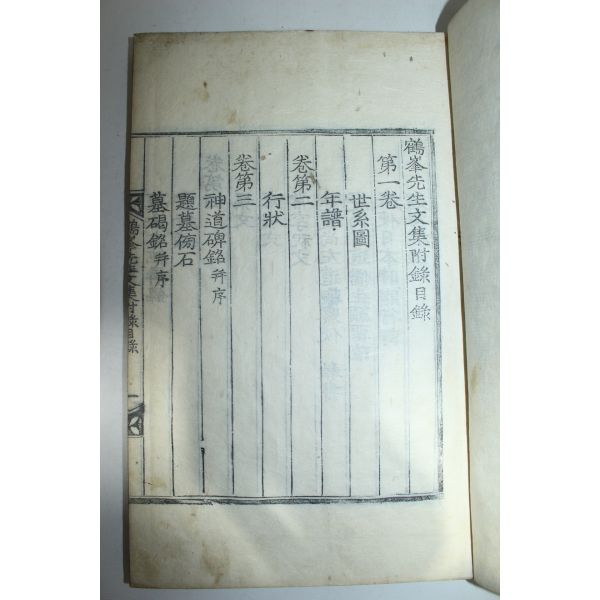 鶴峯先生文集附錄目錄
第一卷
世系圖
年譜
卷第二
行狀
卷第三
神道碑銘 幷序
題墓傍石
墓碣銘 幷序
鶴峯先生文集附錄目錄 一